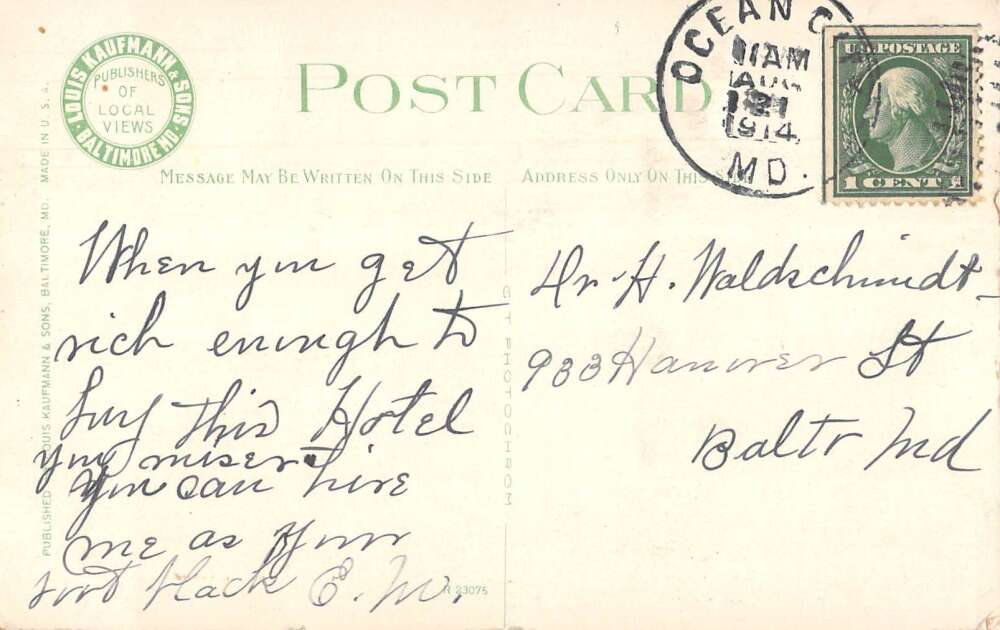 LOUIS KAUFMANN & SONS
BALTIMORE MD.
PUBLISHERS
OF
LOCAL
VIEWS
POST CARD
OCEAN C
11 AM
AUG
21
1914
MD.
U.S. POSTAGE
1 CENT 1
MESSAGE MAY BE WRITTEN ON THIS SIDE
ADDRESS ONLY ON THIS
PUBLISHED LOUIS KAUFMANN & SONS, BALTIMORE, MD. MADE IN U. S. A.
When you get
rich enough to
buy this Hotel
you
you can hire
me as your
boot black E. W.
CT PHOTOCHROM
R 23075
Dr. H. Waldschmidt
933 Hanover St
Balto Md